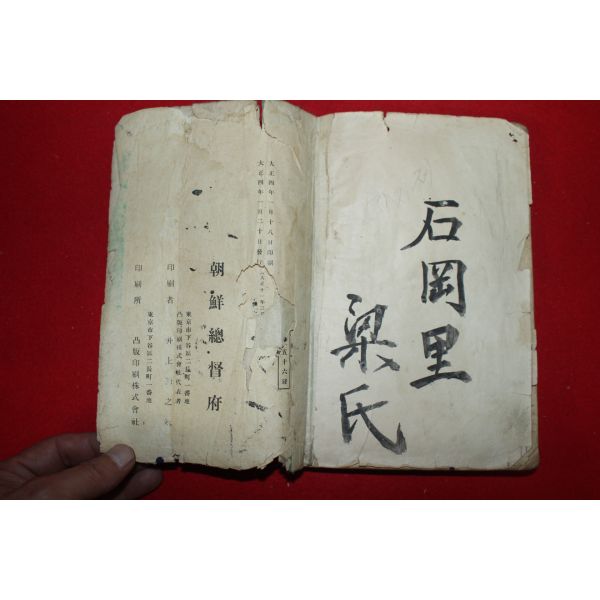 石岡里
梁氏
大正四年一月十八日印刷
大正四年一月二十日發行
朝鮮總督府
東京市下谷區二長町一番地
凸版印刷株式會社代表者
印刷者 井上
東京市下谷區二長町一番地
印刷所 凸版印刷株式會社
五十六錢